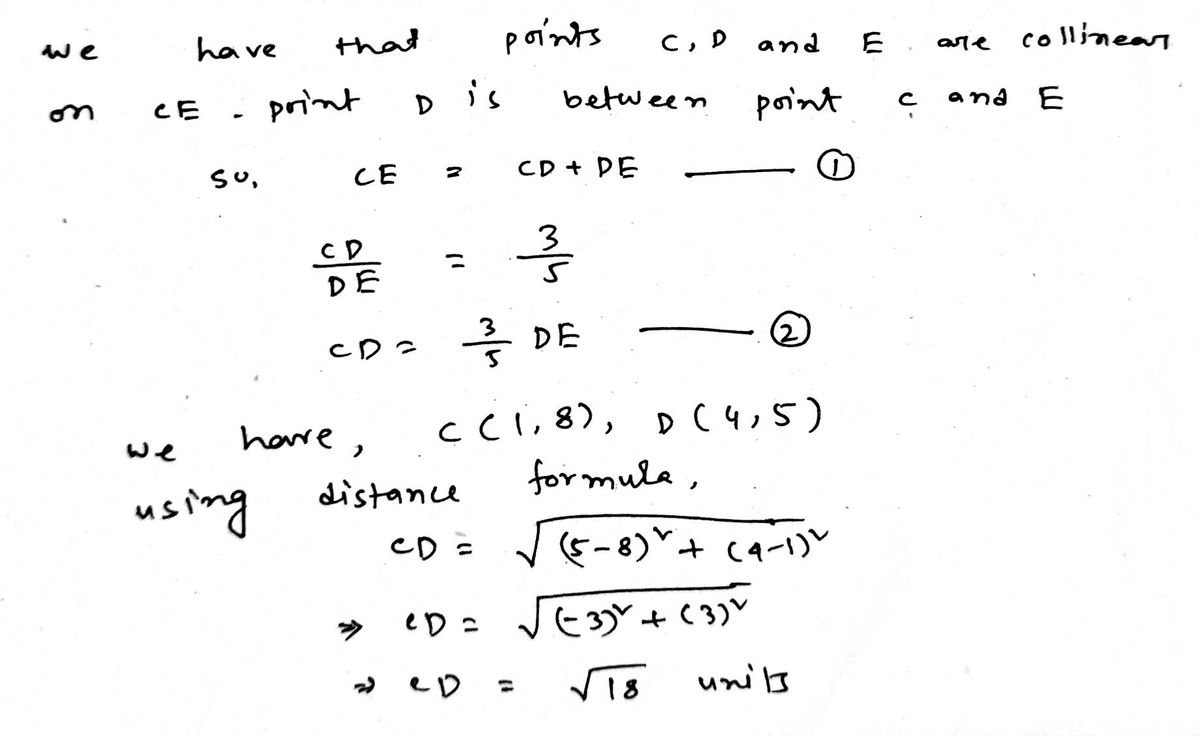 we have that points C, D and E are collinear
on CE . point D is between point C and E
so, CE = CD + DE —— ①
CD/DE = 3/5
CD = 3/5 DE —— ②
we have, C(1,8), D(4,5)
using distance formula,
CD = √((5-8)² + (4-1)²)
⇒ CD = √((-3)² + (3)²)
⇒ CD = √18 units